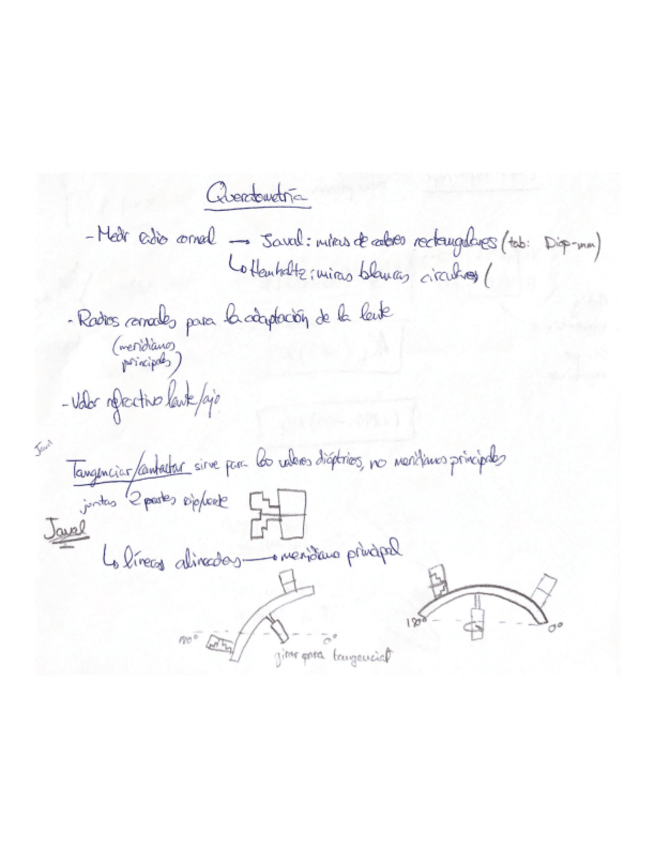 Queratometría
- Medir radio corneal → Javal: miras de colores rectangulares (tab: Diop-mm)
↳ Hemholtz: miras blancas circulares (
- Radios corneales para la adaptación de la lente
(meridianos
principales)
- Valor refractivo lente/ojo
Javal
Tangenciar/contactar sirve para los valores dióptricos, no meridianos principales
juntas 2 partes rojo/verde
Javal
↳ líneas alineadas → meridiano principal
180° 0°
girar para tangencial
180° 0°